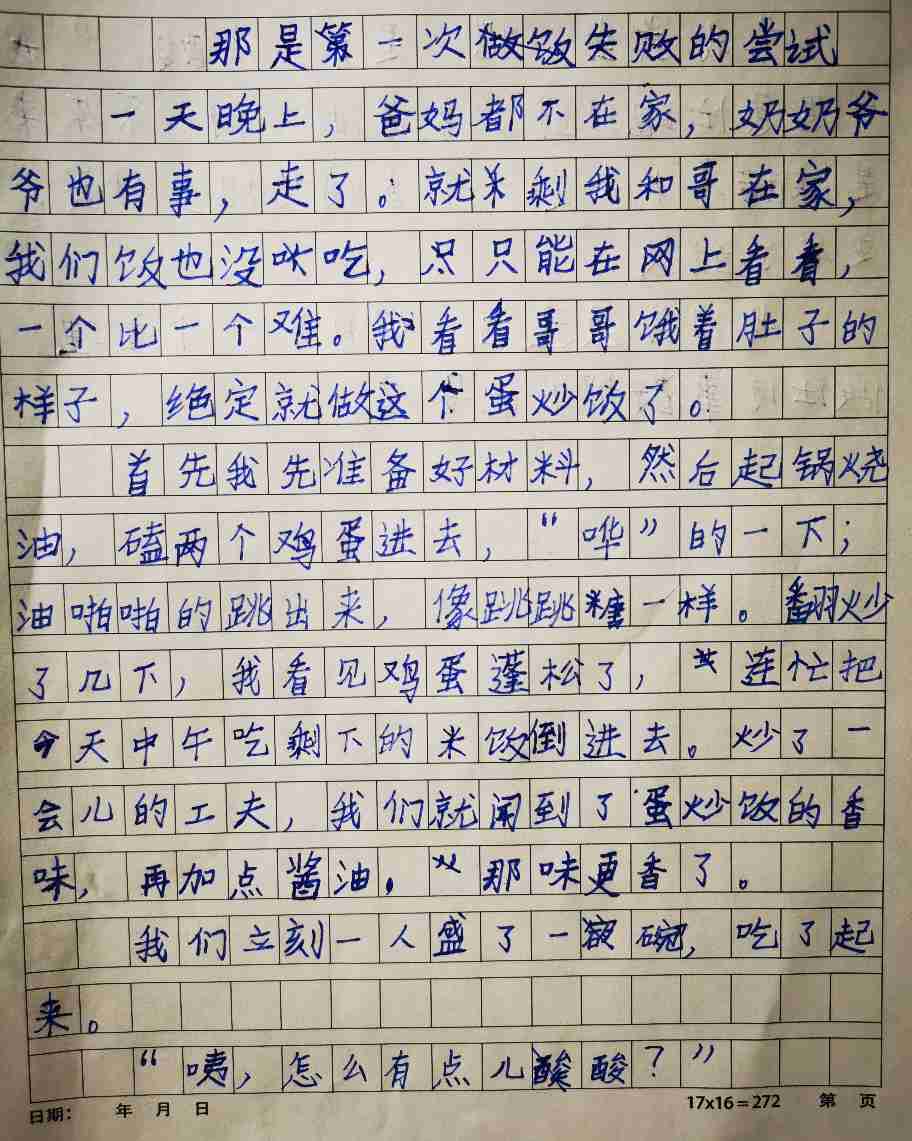 那是第一次做饭失败的尝试
一天晚上，爸妈都不在家，奶奶爷
爷也有事，走了。就剩我和哥在家，
我们饭也没吃，只只能在网上看看，
一个比一个难。我看看哥哥饿着肚子的
样子，绝定就做这个蛋炒饭了。
首先我先准备好材料，然后起锅烧
油，磕两个鸡蛋进去，“哗”的一下；
油啪啪的跳出来，像跳跳糖一样。翻炒
了几下，我看见鸡蛋蓬松了，连忙把
今天中午吃剩下的米饭倒进去。炒了一
会儿的工夫，我们就闻到了蛋炒饭的香
味，再加点酱油，那味更香了。
我们立刻一人盛了一碗，吃了起
来。
“咦，怎么有点儿酸酸？”
日期： 年 月 日 17x16=272 第 页